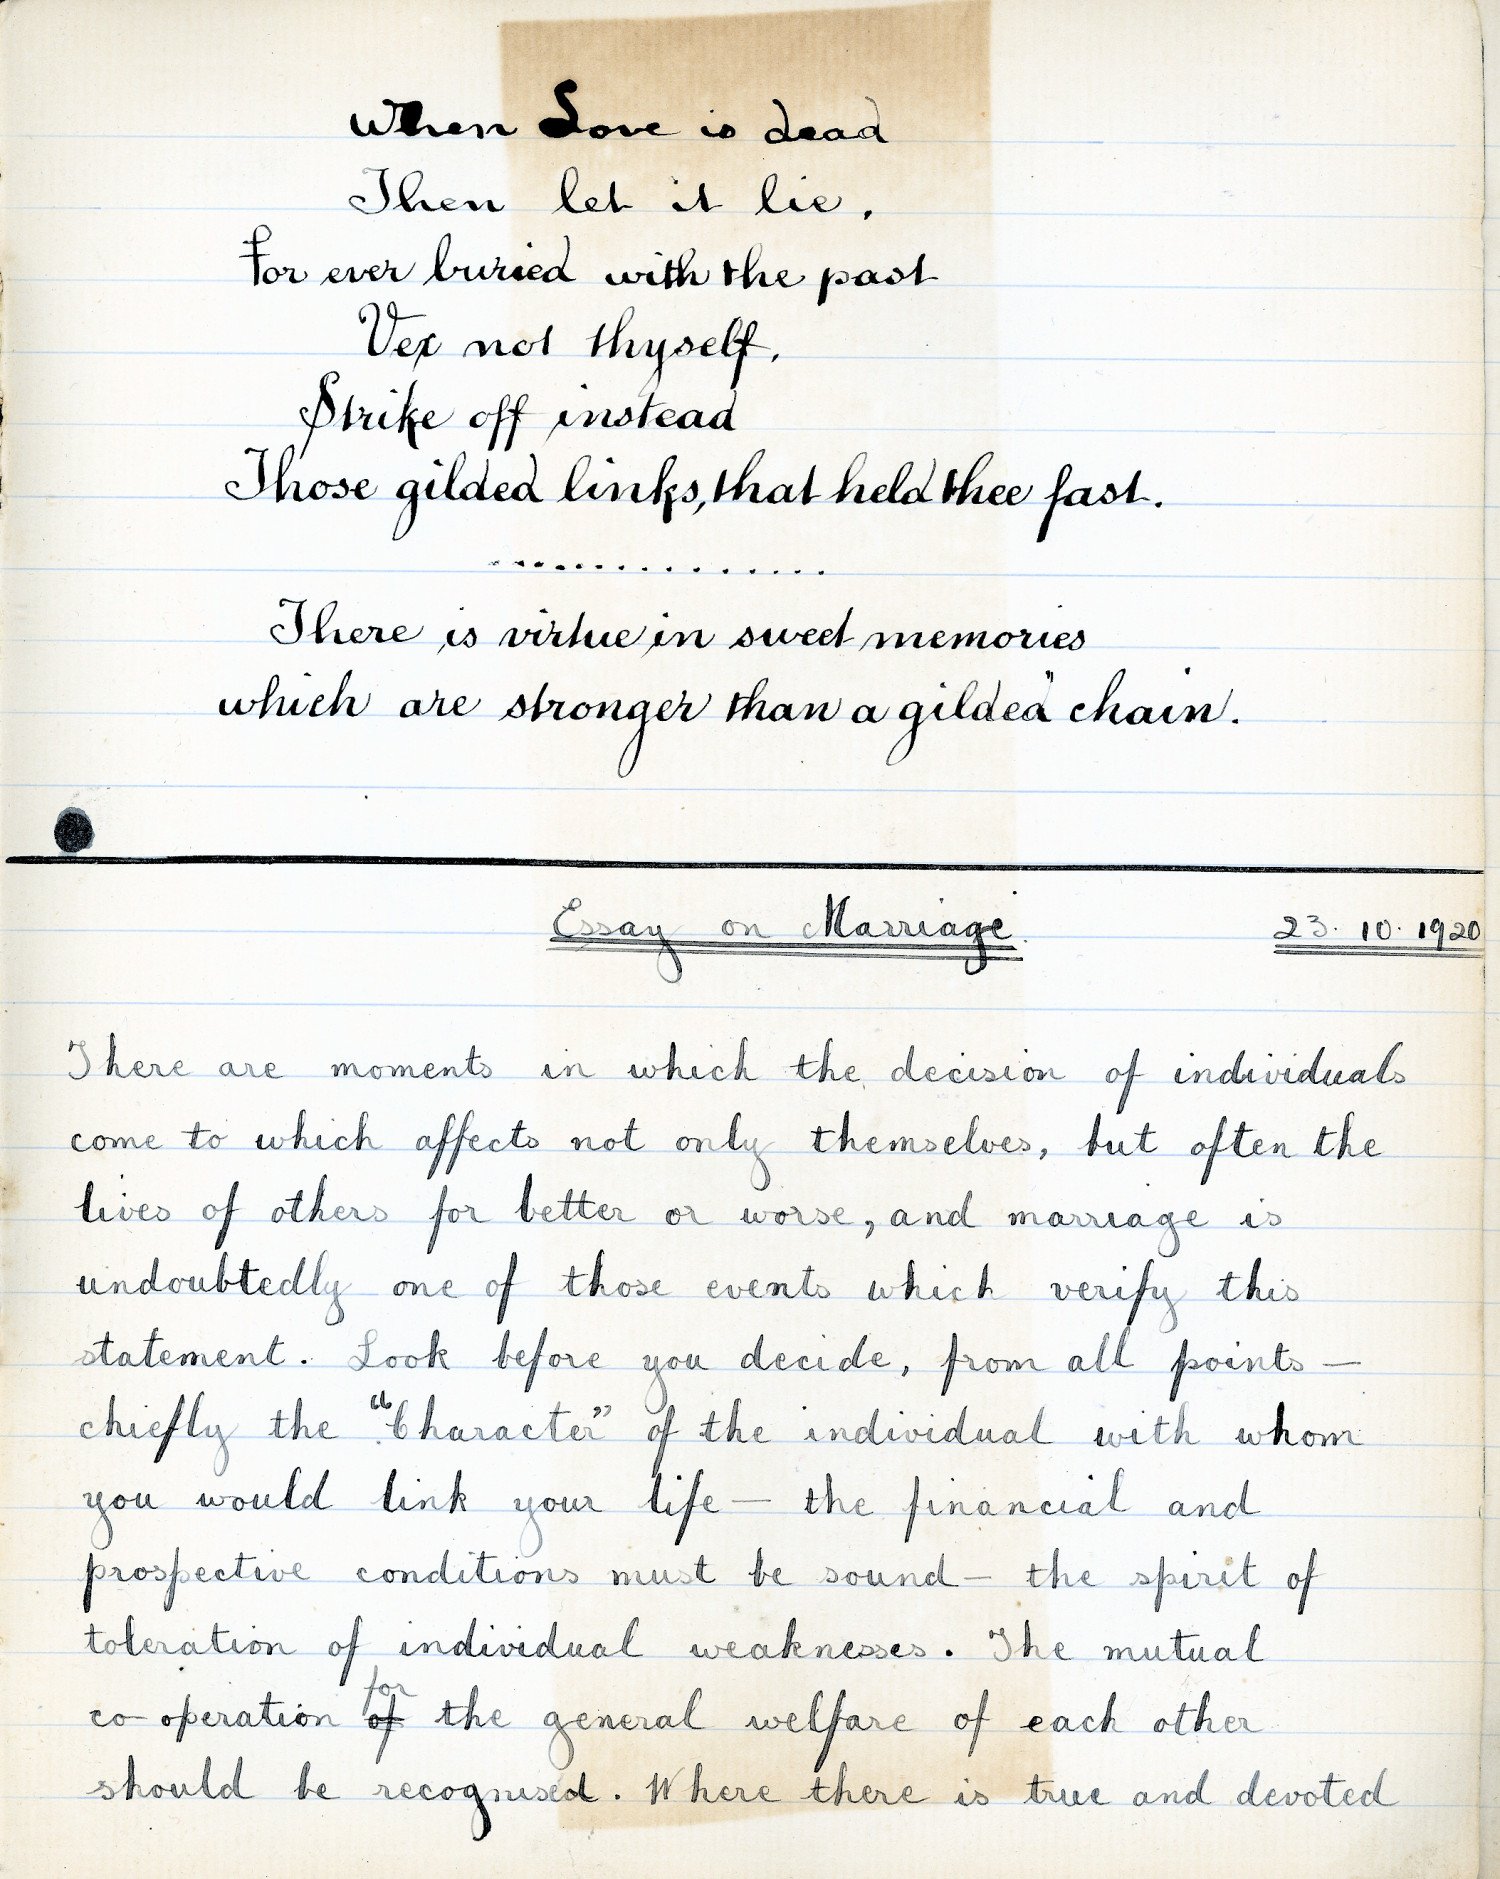 When Love is dead
Then let it lie,
For ever buried with the past
Vex not thyself,
Strike off instead
Those gilded links, that held thee fast.
...............
There is virtue in sweet memories
which are stronger than a gilded" chain.
Essay on Marriage. 23. 10. 1920
There are moments in which the decision of individuals
come to which affects not only themselves, but often the
lives of others for better or worse, and marriage is
undoubtedly one of those events which verify this
statement. Look before you decide, from all points —
chiefly the "Character" of the individual with whom
you would link your life — the financial and
prospective conditions must be sound — the spirit of
toleration of individual weaknesses. The mutual
co-operation of for the general welfare of each other
should be recognised. Where there is true and devoted